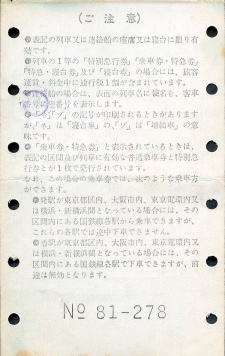 （ご注意）
●表記の列車又は連絡船の座席又は寝台に限り有
効です。
●列車の1等の「特別急行券」「乗車券・特急券」
「特急・寝台券」及び「寝台券」の場合には、旅客
運賃・料金中に通行税1割が含まれています。
●連絡船の場合は、表面の列車名に便名を、客車
番号
を表示します。
の記号が印刷されるときがあります
が、「ネ」は「寝台車」の、「ソ」は
の意
味です。
●「乗車券・特急券」と表示されているときは、
表記の区間及び列車に有効な普通乗車券と特別急
行券とが1枚で発行されています。
なお、この場合の乗車券では、次のような乗車方
ができます。
●発駅が東京都区内、大阪市内、東京電環内又
は横浜・新横浜間となっている場合には、その
区間内にある国鉄線各駅から乗車できますが、
これらの各駅では途中下車できません。
●着駅が東京都区内、大阪市内、東京電環内又
は横浜・新横浜間となっている場合には、その
区間内にある国鉄線各駅で下車できますが、前
途は無効となります。
№ 81-278